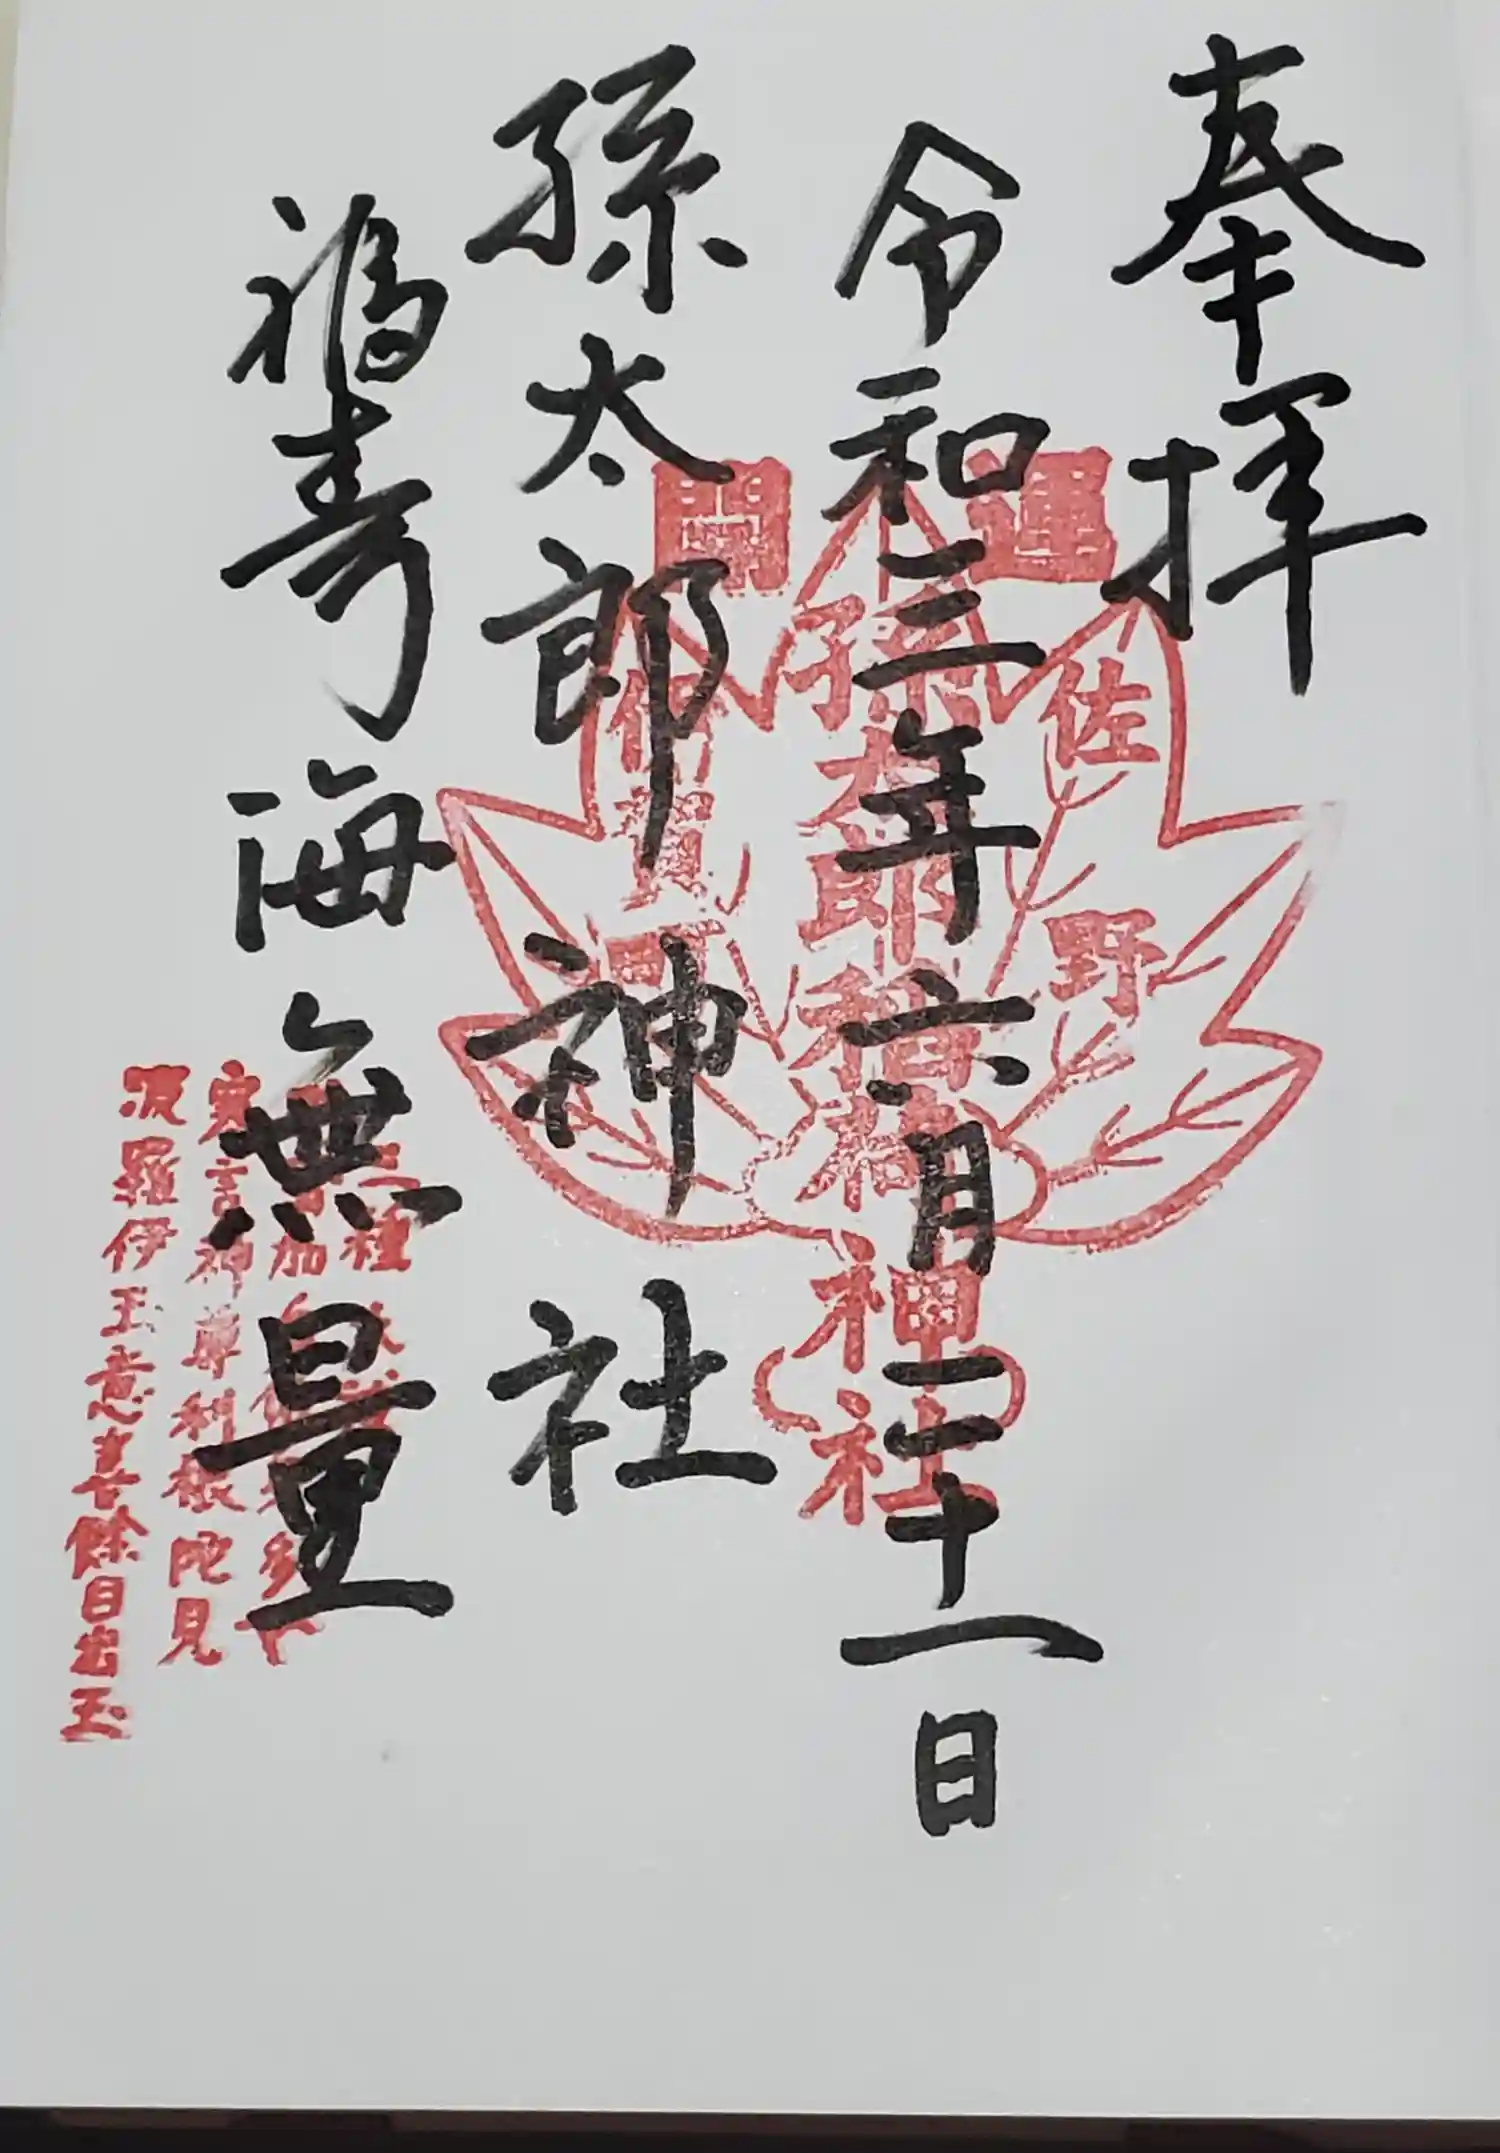 奉拝
令和三年六月二十一日
孫太郎神社
福寿海無量
開運
佐野
孫太郎稲荷神社
伊賀
三種
寒言神尊利根陀見
波羅伊玉意喜餘目出玉